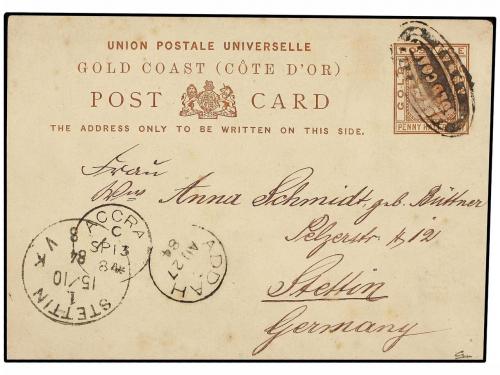 UNION POSTALE UNIVERSELLE
GOLD COAST (CÔTE D'OR)
POST CARD
THE ADDRESS ONLY TO BE WRITTEN ON THIS SIDE.
GOLD
PENNY
Frau
Wwe Anna Schmidt, geb. Büttner
Pelzerstr. 12
Stettin
Germany
ACCRA
C
SP 13
84
ADDAH
AU 27
84
STETTIN
1
15/10
84
8 V